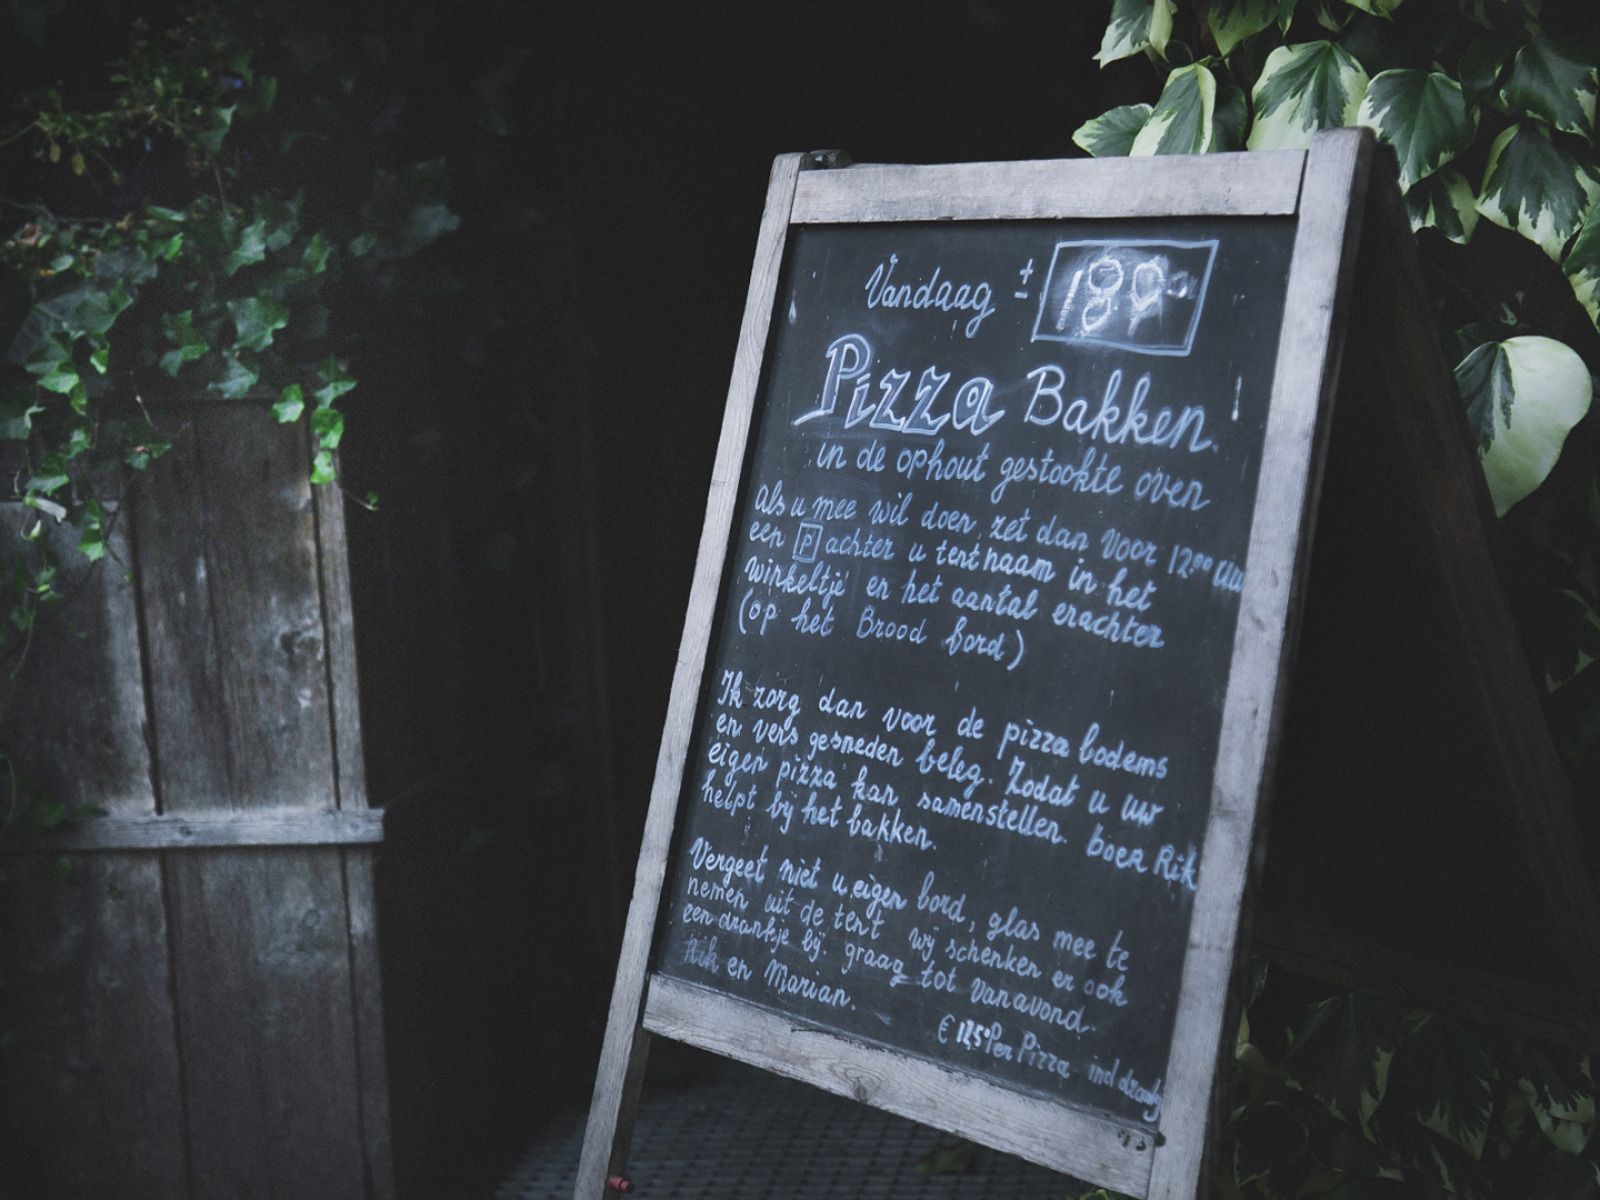 Vandaag ± 18.00
Pizza Bakken.
in de ophout gestookte oven
Als u mee wil doen, zet dan voor 12.00 uur
een P achter u tentnaam in het
winkeltje en het aantal erachter
(op het Brood bord)
Ik zorg dan voor de pizza bodems
en vers gesneden beleg. Zodat u uw
eigen pizza kan samenstellen. boer Rik
helpt bij het bakken.
Vergeet niet u eigen bord, glas mee te
nemen uit de tent wij schenken er ook
een drankje bij. graag tot vanavond.
Rik en Marian.
Per Pizza incl